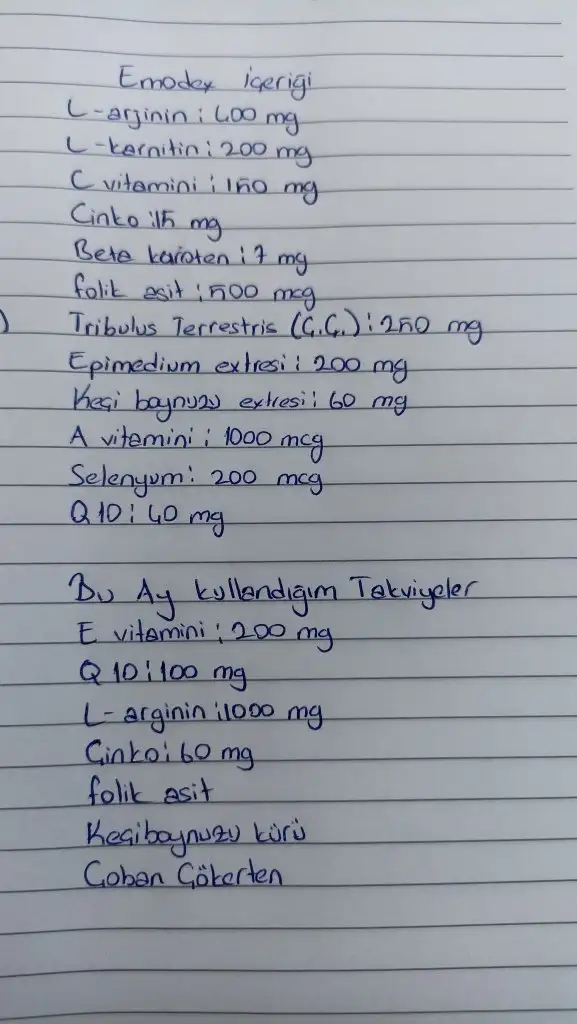 Emodex içeriği
L-arjinin: 400 mg
L-karnitin: 200 mg
C vitamini: 150 mg
Çinko: 15 mg
Beta karoten: 7 mg
folik asit: 500 mcg
Tribulus Terrestris (Ç.Ç.): 250 mg
Epimedium extresi: 200 mg
Keçi boynuzu extresi: 60 mg
A vitamini: 1000 mcg
Selenyum: 200 mcg
Q 10: 40 mg
Bu Ay kullandığım Takviyeler
E vitamini: 200 mg
Q 10: 100 mg
L-arginin: 1000 mg
Çinko: 60 mg
folik asit
Keçiboynuzu kürü
Çoban Çökerten